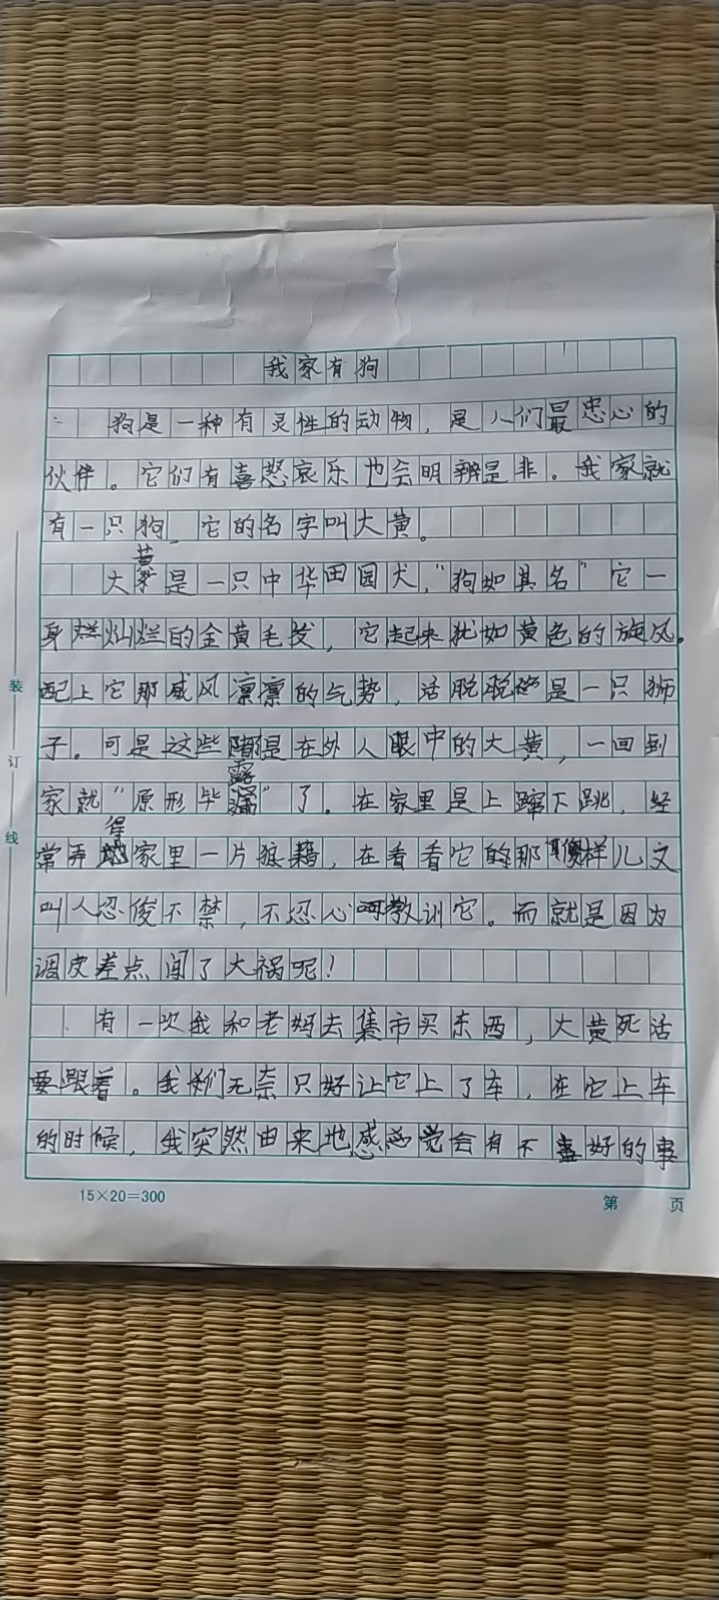 我家有狗
狗是一种有灵性的动物，是人们最忠心的
伙伴。它们有喜怒哀乐也会明辨是非。我家就
有一只狗，它的名字叫大黄。
大黄是一只中华田园犬，“狗如其名”它一
身灿烂的金黄毛发，它起来犹如黄色的旋风。
配上它那威风凛凛的气势，活脱脱是一只狮
子。可是这些都是在外人眼中的大黄，一回到
家就“原形毕露”了。在家里是上蹿下跳，经
常弄得家里一片狼藉，在看看它的那傻样儿又
叫人忍俊不禁，不忍心教训它。而就是因为
调皮差点闯了大祸呢！
有一次我和老妈去集市买东西，大黄死活
要跟着。我们无奈只好让它上了车，在它上车
的时候，我突然由来地感觉会有不好的事
15×20=300
第 页
装
订
线